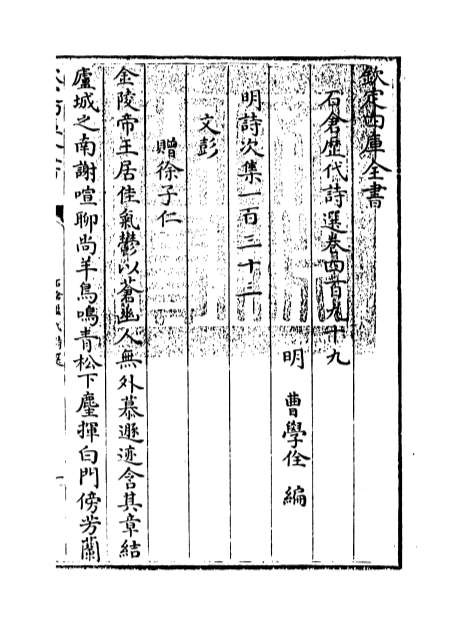 欽定四庫全書
石倉歴代詩選卷四百九十九
明 曹學佺 編
明詩次集一百三十三
文彭
贈徐子仁
金陵帝王居佳氣鬱以蒼幽人無外慕遯迹含其章結
廬城之南謝喧聊尚羊鳥鳴青松下麈揮白門傍芳蘭